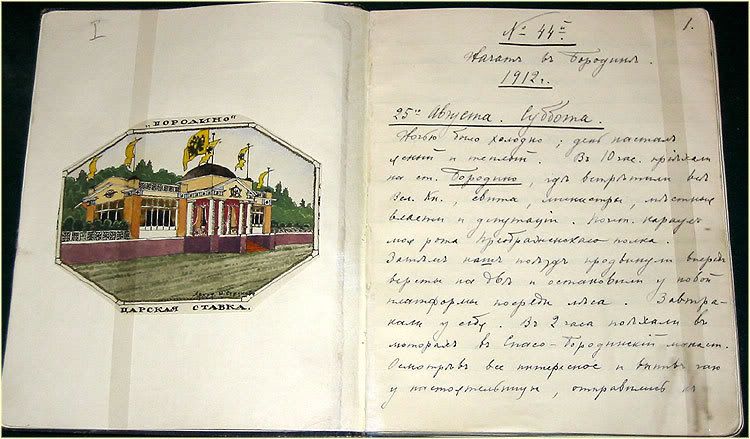 I
„БОРОДИНО"
ЦАРСКАЯ СТАВКА.
1.
№ 44й.
Начатъ въ Бородинѣ.
1912 г.
25го Августа. Суббота.
Ночью было холодно; день насталъ
ясный и теплый. Въ 10 час. прiѣхали
на ст. Бородино, гдѣ встрѣтили всѣ
Вел. Кн., свита, министры, мѣстныя
власти и депутацiи. Почт. караулъ
моя рота Преображенскаго полка.
Затѣмъ нашъ поѣздъ продвинули впередъ
версты на двѣ и остановили у новой
платформы посреди лѣса. Завтра-
кали у себя. Въ 2 часа поѣхали въ
моторахъ въ Спасо-Бородинскiй монаст.
Осмотрѣвъ все интересное и выпивъ чаю
у настоятельницы, отправились къ